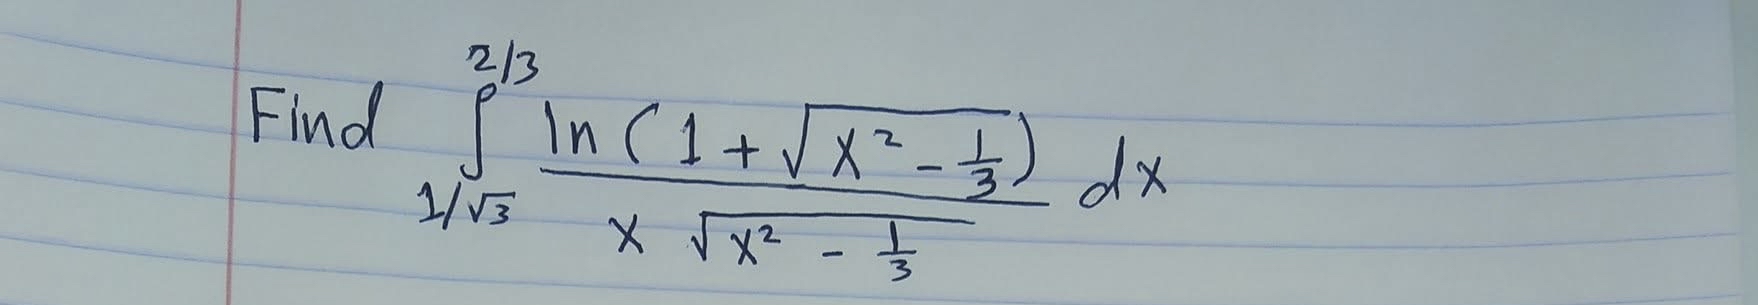 Find ∫_{1/√3}^{2/3} ln(1 + √(x² - 1/3)) / (x √(x² - 1/3)) dx